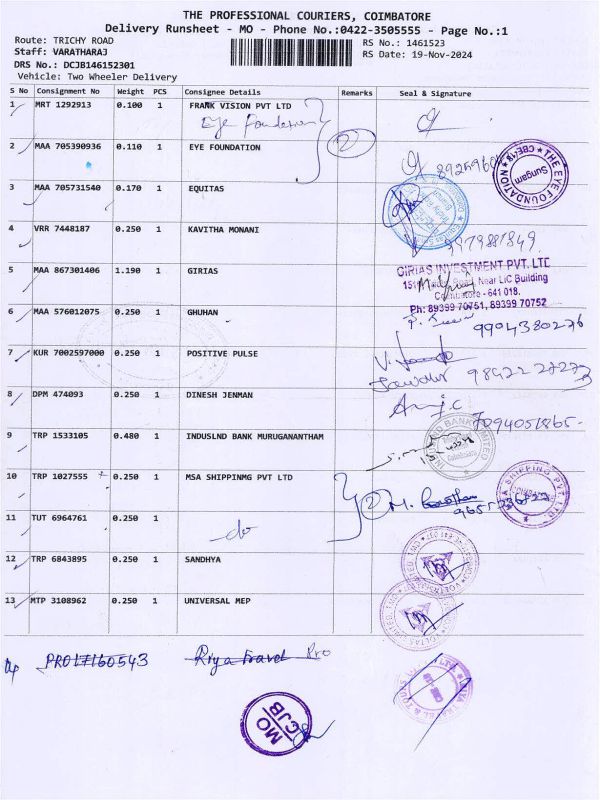 THE PROFESSIONAL COURIERS, COIMBATORE
Delivery Runsheet - MO - Phone No.:0422-3505555 - Page No.:1
Route: TRICHY ROAD RS No.: 1461523
Staff: VARATHARAJ RS Date: 19-Nov-2024
DRS No.: DCJB146152301
Vehicle: Two Wheeler Delivery
S No Consignment No Weight PCS Consignee Details Remarks Seal & Signature
1 MRT 1292913 0.100 1 FRANK VISION PVT LTD
Eye Foundation
2 MAA 705390936 0.110 1 EYE FOUNDATION 2
THE EYE FOUNDATION
Sungam
CBE-18
3 MAA 705731540 0.170 1 EQUITAS
4 VRR 7448187 0.250 1 KAVITHA MONANI
9979881849
5 MAA 867301406 1.190 1 GIRIAS
GIRIAS INVESTMENT PVT. LTD
Near LIC Building
Coimbatore - 641 018.
Ph: 89399 70751, 89399 70752
6 MAA 576012075 0.250 1 GHUHAN
9994380276
7 KUR 7002597000 0.250 1 POSITIVE PULSE
8 DPM 474093 0.250 1 DINESH JENMAN
7094051865-
9 TRP 1533105 0.480 1 INDUSLND BANK MURUGANANTHAM
INDUSIND BANK LIMITED
10 TRP 1027555 0.250 1 MSA SHIPPINMG PVT LTD
2 M.
SHIPPING PVT. LTD
11 TUT 6964761 0.250 1
-do
12 TRP 6843895 0.250 1 SANDHYA
13 MTP 3108962 0.250 1 UNIVERSAL MEP
VOLTAS LIMITED
PRO17160543 Riya travel Pro
MO
CJB